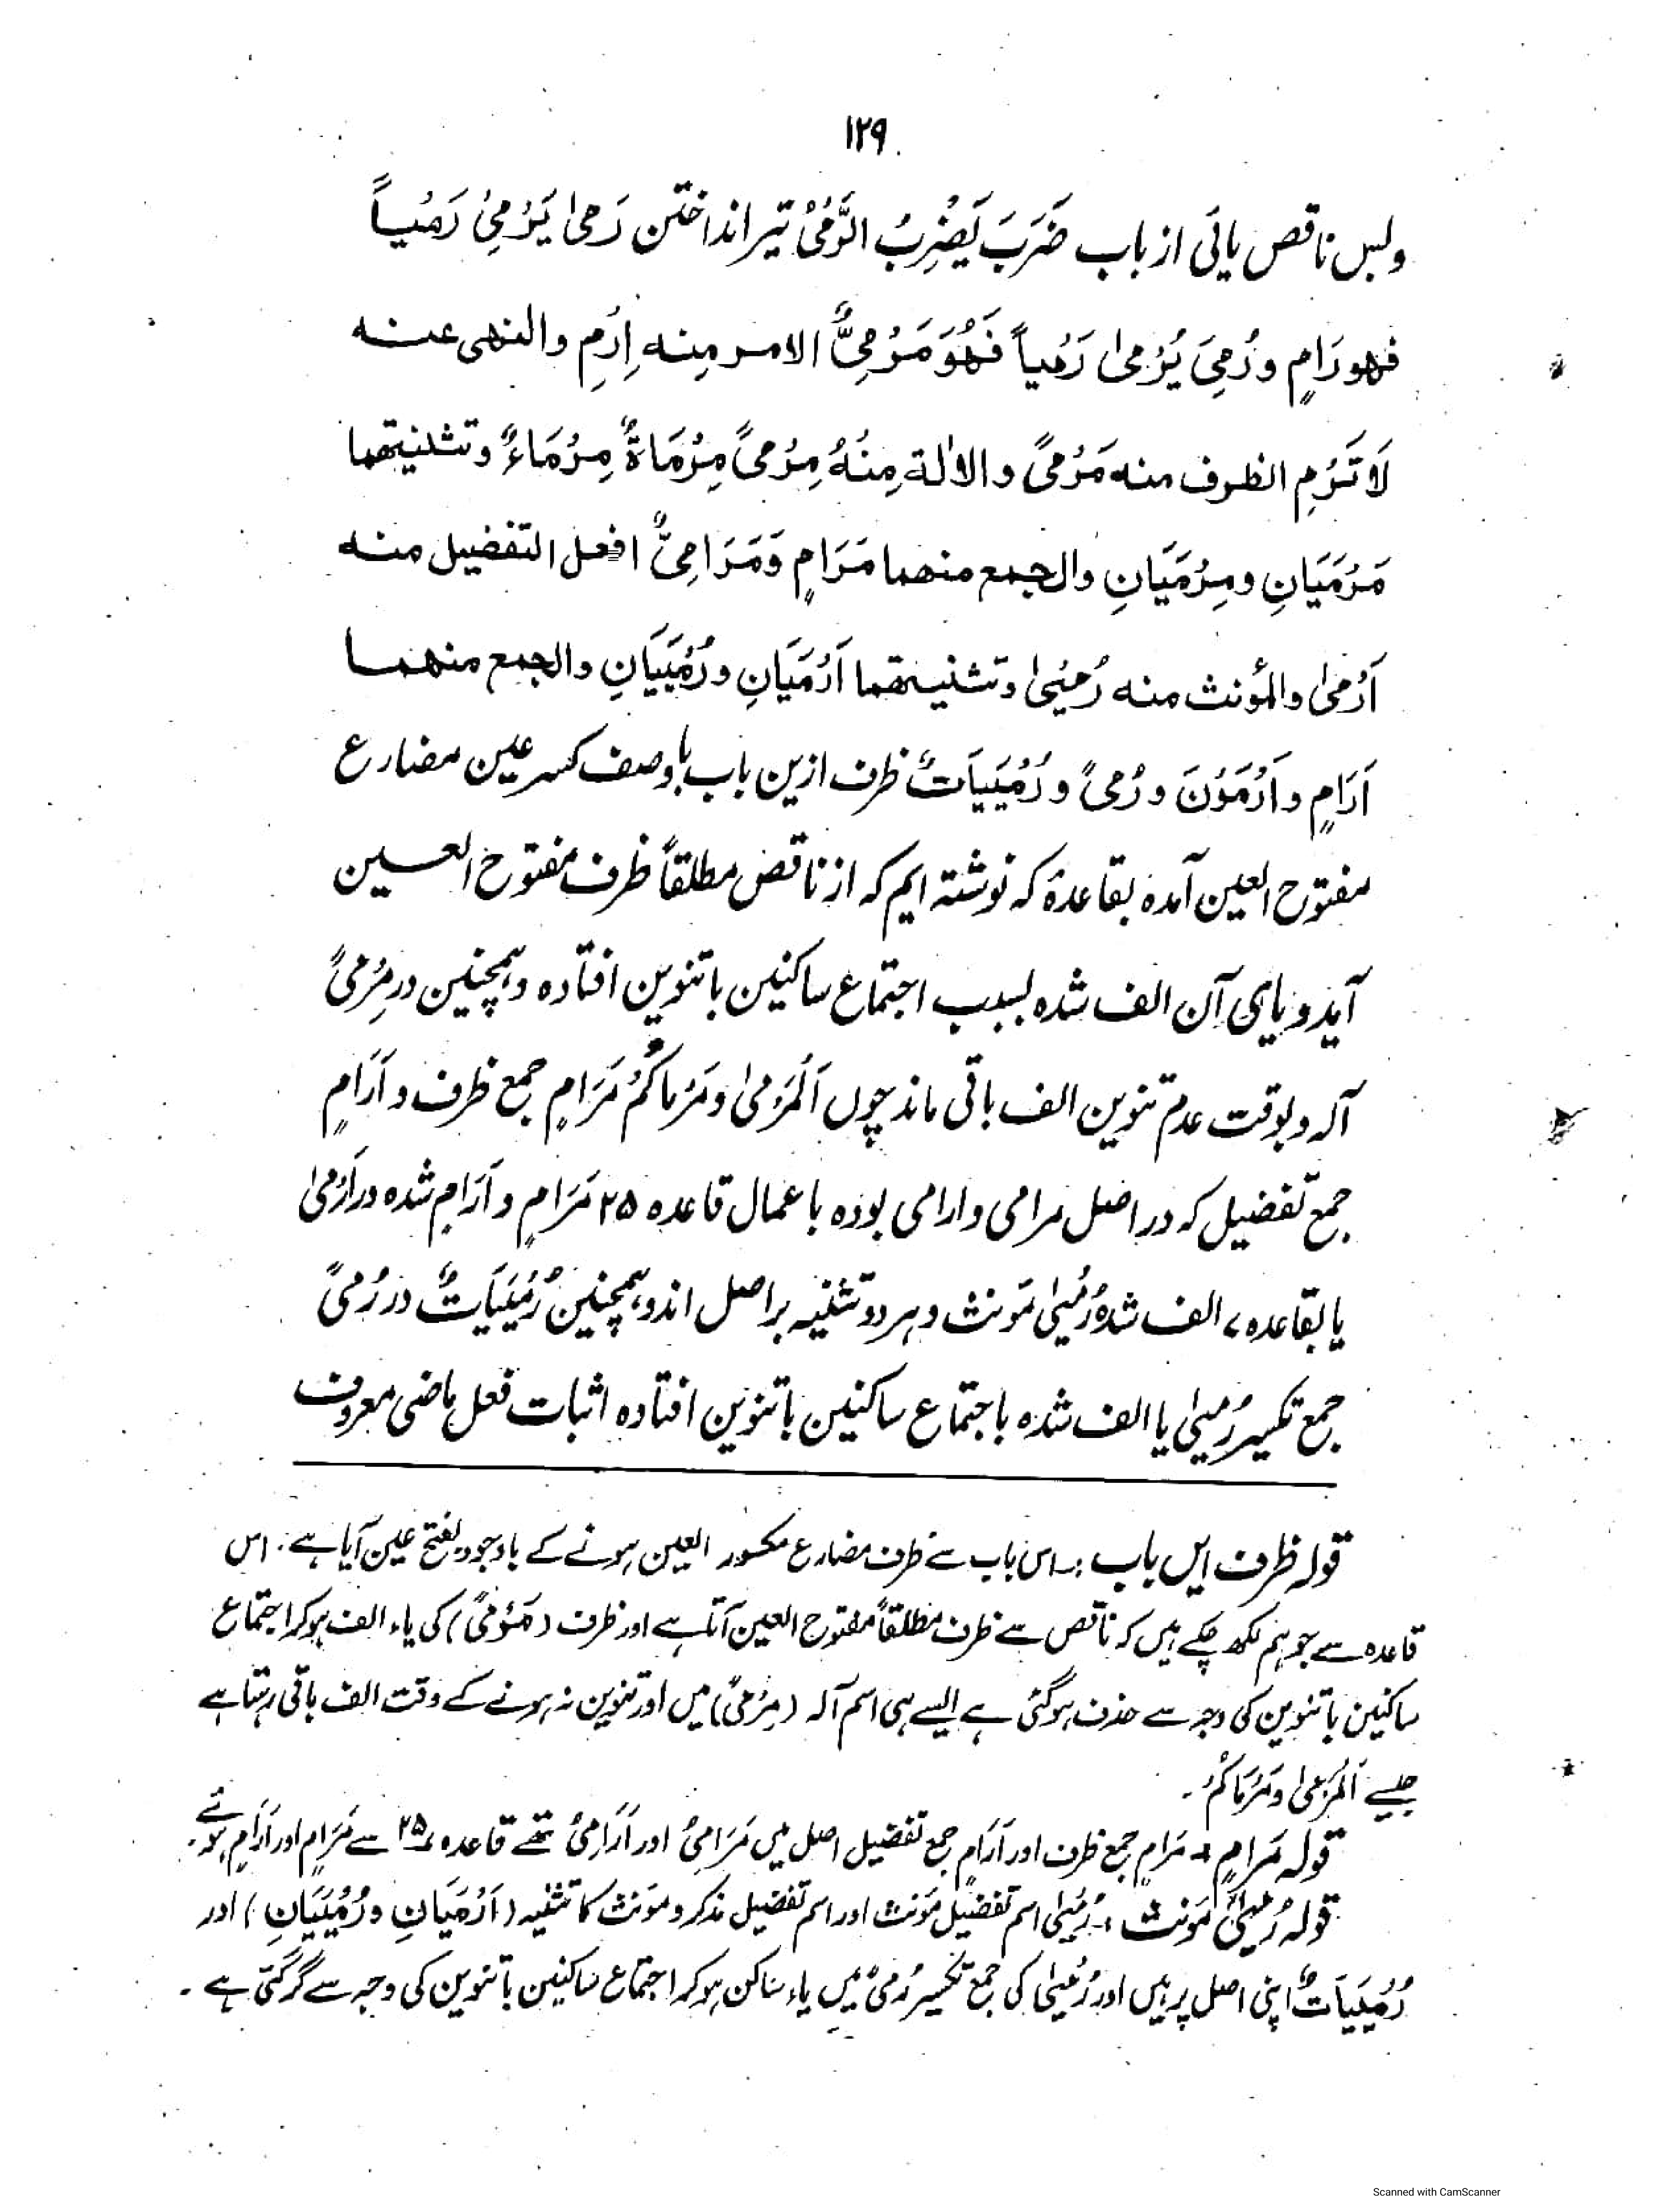 ۱۲۹
ناقص یائی از باب ضَرَبَ یَضْرِبُ الرَّمْیُ تیر انداختن رَمیٰ یَرْمِیْ رَمْیاً
فهو رَامٍ ورُمِیَ یُرْمیٰ رَمْیاً فَهُوَ مَرْمِیٌّ الامر مِنه اِرْمِ والنهی عنه
لَا تَرْمِ الظرف منه مَرْمیً والاٰلة مِنْهُ مِرْمیً مِرْمَاةٌ مِرْمَاءٌ وتثنیتهما
مَرْمَیَانِ ومِرْمَیَانِ والجمع منهما مَرَامٍ وَمَرَامِیُّ افعل التفضیل منه
اَرْمیٰ والمؤنث منه رُمْییٰ وتثنیتهما اَرْمَیَانِ ورُمْیَیَانِ والجمع منهما
اَرَامٍ واَرْمَوْنَ ورُمیً ورُمْیَیَاتٌ ظرف ازین باب باوصف کسر عین مضارع
مفتوح العین آمده بقاعدۂ که نوشته ایم که از ناقص مطلقاً ظرف مفتوح العین
آید ویای آن الف شده بسبب اجتماع ساکنین با تنوین افتاده وہمچنین در مِرْمیً
آلہ وبوقت عدم تنوین الف باقی ماند چوں اَلْمَرْمیٰ ومَرْمَاکُمْ مَرَامٍ جمع ظرف واَرَامٍ
جمع تفضیل که در اصل مرامی وارامی بوده باعمال قاعده ۲۵ مَرَامٍ واَرَامٍ شده در اَرْمیٰ
یا بقاعده ۷ الف شده رُمْییٰ مؤنث وہر دو تثنیہ بر اصل اند وہمچنین رُمْیَیَاتٌ در رُمیً
جمع تکسیر رُمْییٰ یا الف شده باجتماع ساکنین با تنوین افتاده اثبات فعل ماضی معروف
قولہ ظرف ایں باب :۔ اس باب سے ظرف مضارع مکسور العین ہونے کے باوجود بفتح عین آیا ہے۔ اس
قاعدہ سے جو ہم لکھ چکے ہیں کہ ناقص سے ظرف مطلقاً مفتوح العین آتا ہے اور ظرف (مَرْمیً) کی یاء الف ہو کر اجتماع
ساکنین با تنوین کی وجہ سے حذف ہوگئی ہے ایسے ہی اسم آلہ (مِرْمیً) میں اور تنوین نہ ہونے کے وقت الف باقی رہتا ہے
جیسے اَلْمَرْمیٰ ومَرْمَاکُمْ۔
قولہ مَرَامٍ :۔ مَرَامٍ جمع ظرف اور اَرَامٍ جمع تفضیل اصل میں مَرَامِیُ اور اَرَامِیُ تھے قاعدہ ۲۵ سے مَرَامٍ اور اَرَامٍ ہوئے۔
قولہ رُمْییٰ مؤنث :۔ رُمْییٰ اسم تفضیل مؤنث اور اسم تفضیل مذکر و مؤنث کا تثنیہ (اَرْمَیَانِ ورُمْیَیَانِ) اور
رُمْیَیَاتٌ اپنی اصل پر ہیں اور رُمْییٰ کی جمع تکسیر رُمیً میں یاء ساکن ہو کر اجتماع ساکنین با تنوین کی وجہ سے گر گئی ہے۔
Scanned with CamScanner